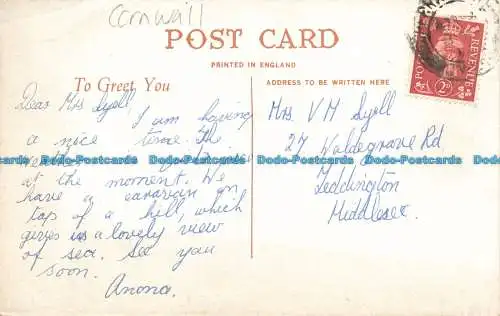 Cornwall
POST CARD
PRINTED IN ENGLAND
To Greet You
ADDRESS TO BE WRITTEN HERE
POSTAGE
REVENUE
2D
Dear Mrs Lyell
I am having
a nice time. The
at the moment. We
have a caravan on
top of a hill, which
gives us a lovely view
of sea. See you
soon.
Anona.
Mrs V M Lyell
27 Waldegrave Rd
Teddington
Middlesex.
Dodo-Postcards Dodo-Postcards Dodo-Postcards Dodo-Postcards Dodo-Postcards